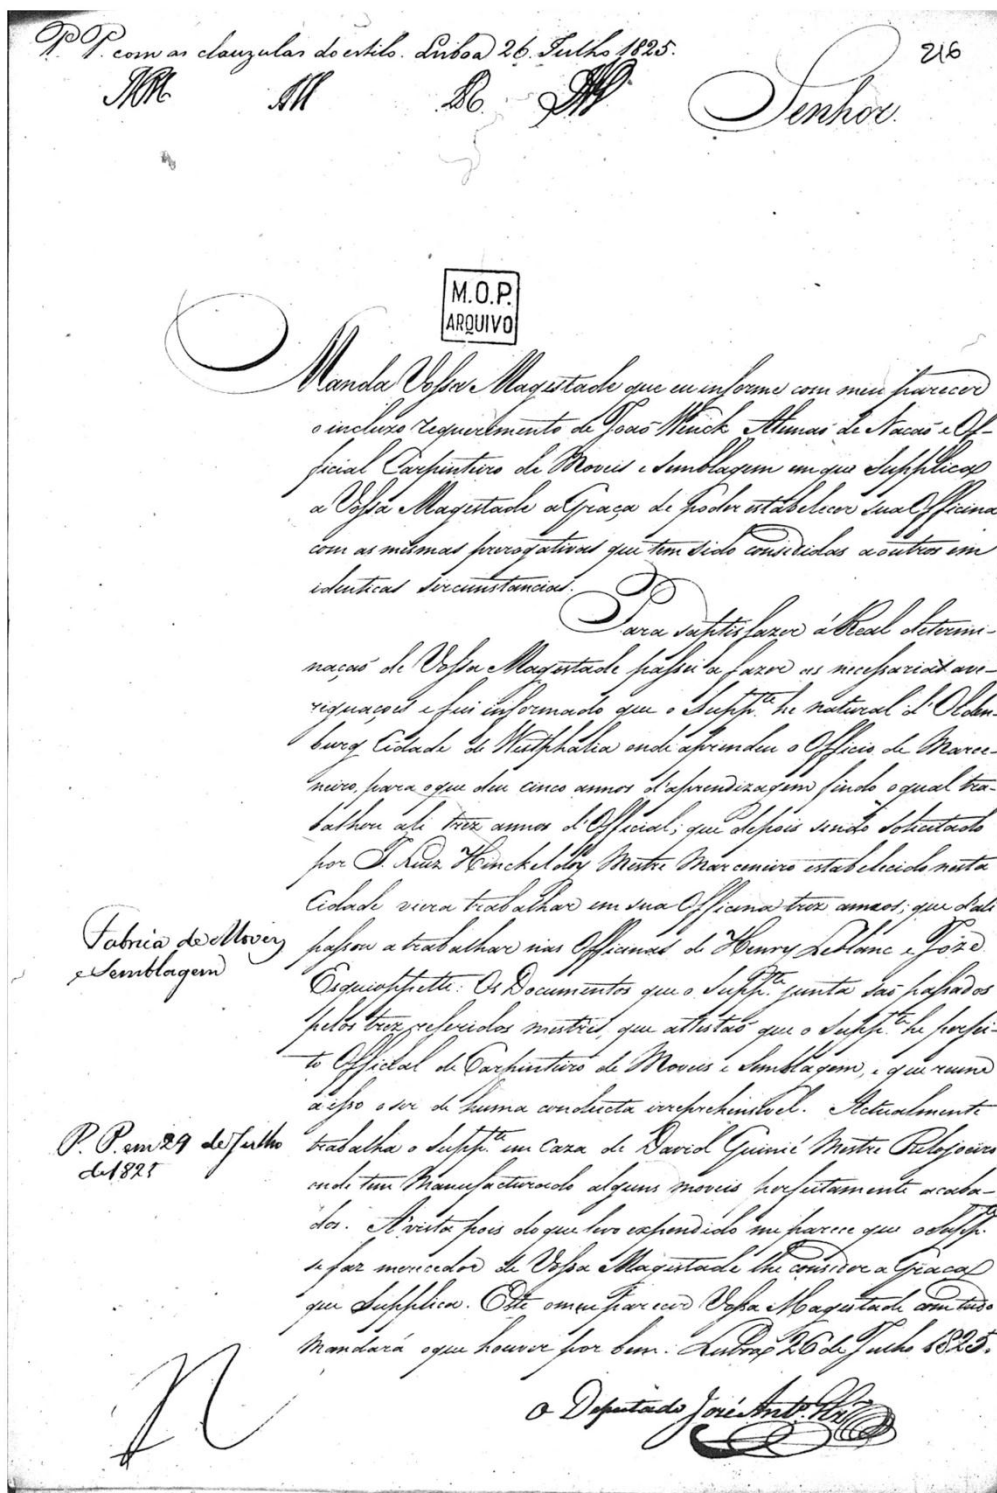 P. P. com as clauzulas do estilo. Lisboa 26. Julho 1825.
216
Senhor.
M.O.P.
ARQUIVO
Manda Vossa Magestade que eu informe com meu parecer
o incluzo requerimento de Joaõ Wenck Alemaõ de Nacaõ e Of-
ficial Carpinteiro de Moveis e semblagem em que Supplica
a Vossa Magestade a Graça de poder estabelecer sua Officina
com as mismas prerogativas que tem sido consedidas a outros em
identicas sircunstancias.
Para saptisfazer á Real determi-
naçaõ de Vossa Magestade passei a fazer as necessarias ave-
riguaçoes e fui informado que o Supp.te he natural d'Olden-
burg Cidade de Westphalia onde aprendeu o Officio de Marce-
neiro, para o que deu cinco annos d'aprendizagem findo o qual tra-
balhou ali trez annos d'Official; que depois sendo solicitado
por F. Hinckeldey Mestre Marceneiro estabelecido nesta
Cidade viera trabalhar em sua Officina trez annos; que d'ali
passou a trabalhar nas Officinas de Henry Leblanc e Joze
Esquioppette: Os Documentos que o Supp.te junta saõ passados
pelos trez referidos mestres, que attestaõ que o Supp.te he perfei-
to Official de Carpinteiro de Moveis e Semblagem, e que reune
a isso o ser de huma conducta irreprehensivel. Actualmente
trabalha o Supp.te em caza de David Guinié Mestre Relojoeiro
onde tem Manufacturado alguns moveis perfeitamente acaba-
dos. A vista pois do que levo expendido me parece que o Supp.te
se faz merecedor de Vossa Magestade lhe conseder a Graça
que Supplica. Este o meu parecer Vossa Magestade com tudo
mandará o que houver por bem. Lisboa 26 de Julho 1825.
Fabrica de Moveis
e Semblagem
P. P. em 29 de Julho
de 1825
O Deputado José Ant.o